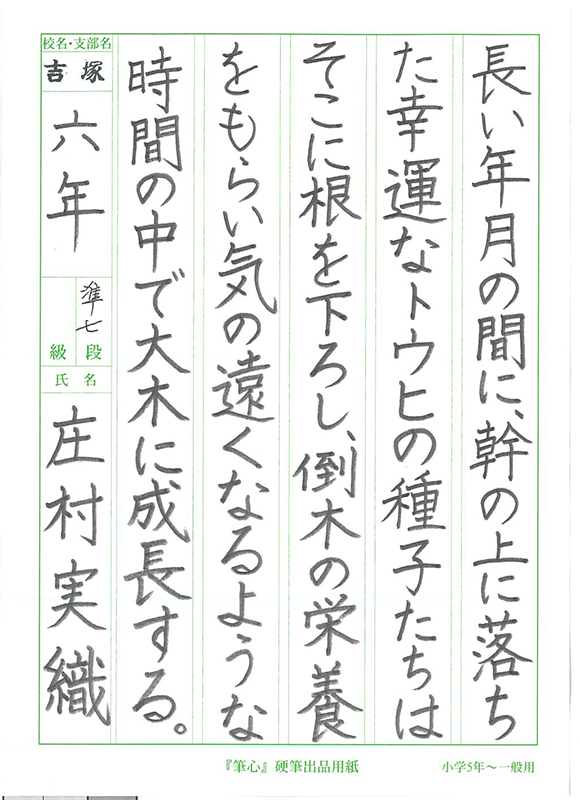 長い年月の間に、幹の上に落ち
た幸運なトウヒの種子たちは
そこに根を下ろし、倒木の栄養
をもらい気の遠くなるような
時間の中で大木に成長する。
校名・支部名
吉塚
六年
準七
段
級
氏名
庄村実織
『筆心』硬筆出品用紙
小学5年〜一般用